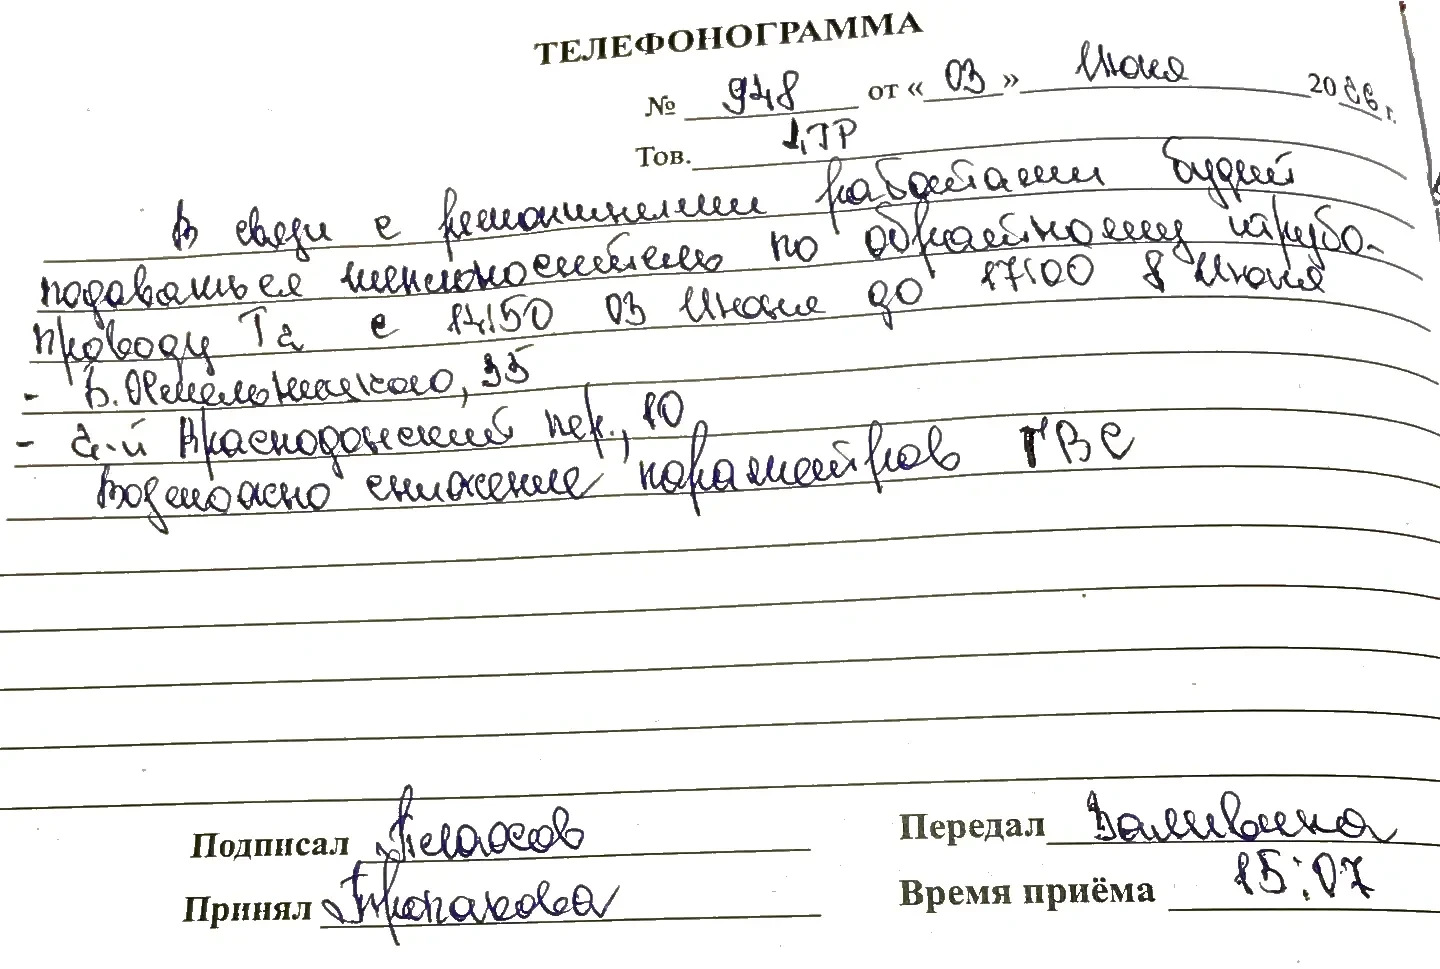 ТЕЛЕФОНОГРАММА
№ 948 от «03» Июня 2026 г.
Тов. 1,ТР
В связи с ремонтными работами будет
подаваться теплоноситель по обратному трубо-
проводу Т2 с 14:50 03 Июня до 17:00 8 Июня
- Б. Хмельницкого, 35
- 2-й Краснодонский пер., 10
Возможно снижение параметров ГВС
Подписал
Передал
Принял
Время приёма 15:07